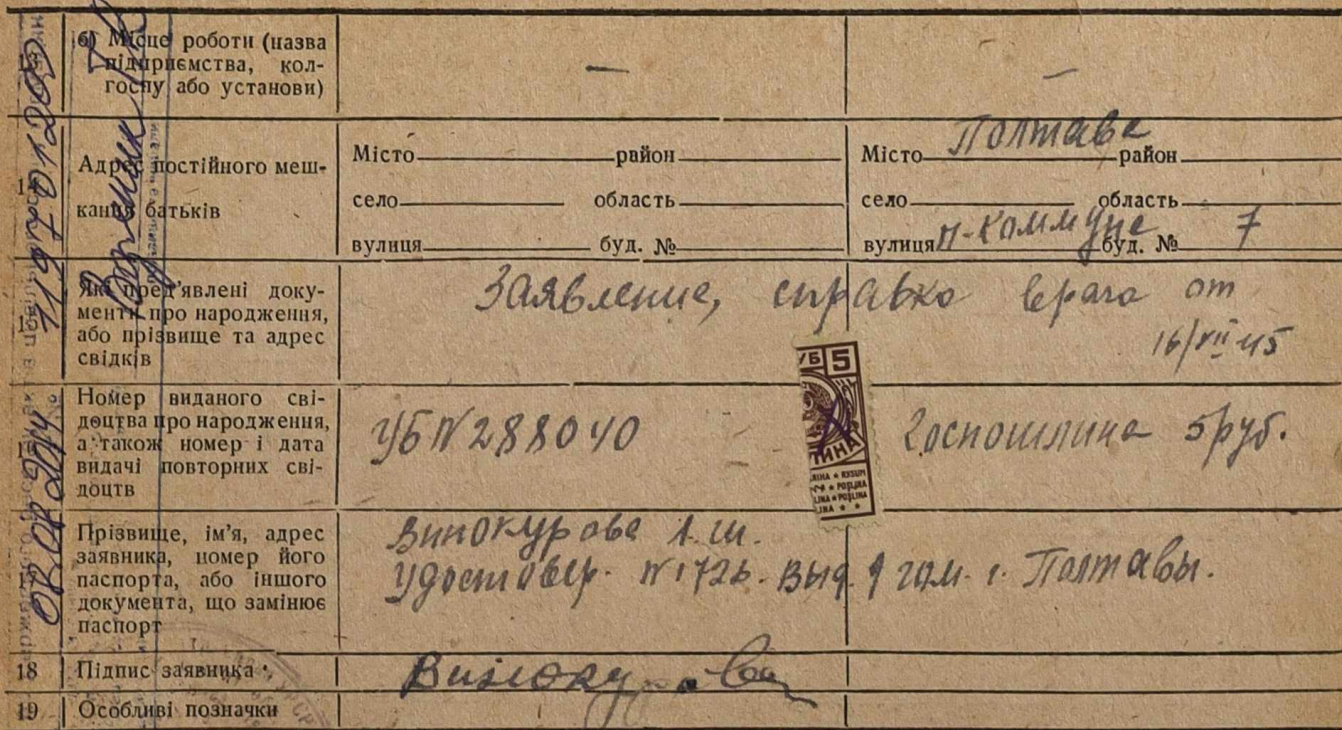 б) Місце роботи (назва
підприємства, кол-
госпу або установи)
— —
Адрес постійного меш-
кання батьків
Місто район
село область
вулиця буд. №
Місто Полтава район
село область
вулиця П-Коммуне буд. № 7
Які пред'явлені доку-
менти про народження,
або прізвище та адрес
свідків
Заявление, справка врача от
16/VII 45
Номер виданого сві-
доцтва про народження,
а також номер і дата
видачі повторних сві-
доцтв
УБ N 288040
УБ 5
Госпошлина 5 руб.
Прізвище, ім'я, адрес
заявника, номер його
паспорта, або іншого
документа, що замінює
паспорт
Винокурова А. Ш.
Удостовер. N 1726. выд. 9 гом. г. Полтавы.
18 Підпис заявника
Винокурова
19 Особливі позначки